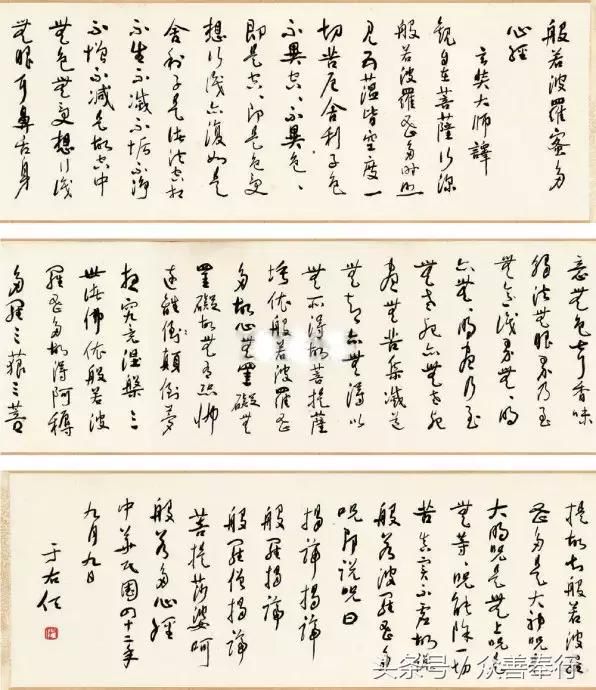 般若波羅蜜多
心經
玄奘大師譯
觀自在菩薩行深
般若波羅蜜多時照
見五蘊皆空度一
切苦厄舍利子色
不異空、不異色、
即是空、即是色受
想行識亦復如是
舍利子是諸法空相
不生不滅不垢不淨
不增不減是故空中
無色無受想行識
無眼耳鼻舌身
意無色聲香味
觸法無眼界乃至
無意識界無、明
亦無、明盡乃至
無老死亦無老死
盡無苦集滅道
無智亦無得以
無所得故菩提薩
埵依般若波羅蜜
多故心無罣礙無
罣礙故無有恐怖
遠離倒顛倒夢
想究竟涅槃三
世諸佛依般若波
羅蜜多故得阿耨
多羅三藐三菩
提故知般若波羅
蜜多是大神呪是
大明呪是無上呪是
無等、呪能除一切
苦真實不虛故說
般若波羅蜜多
呪即說呪曰
揭諦揭諦
般羅揭諦
般羅僧揭諦
菩提莎婆呵
般若多心經
中華民國四十二年
九月九日
于右任
头条号：众善奉行